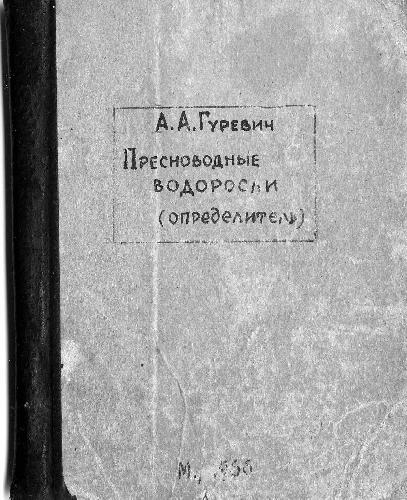 А.А.Гуревич
Пресноводные
водоросли
(определитель)
М.,